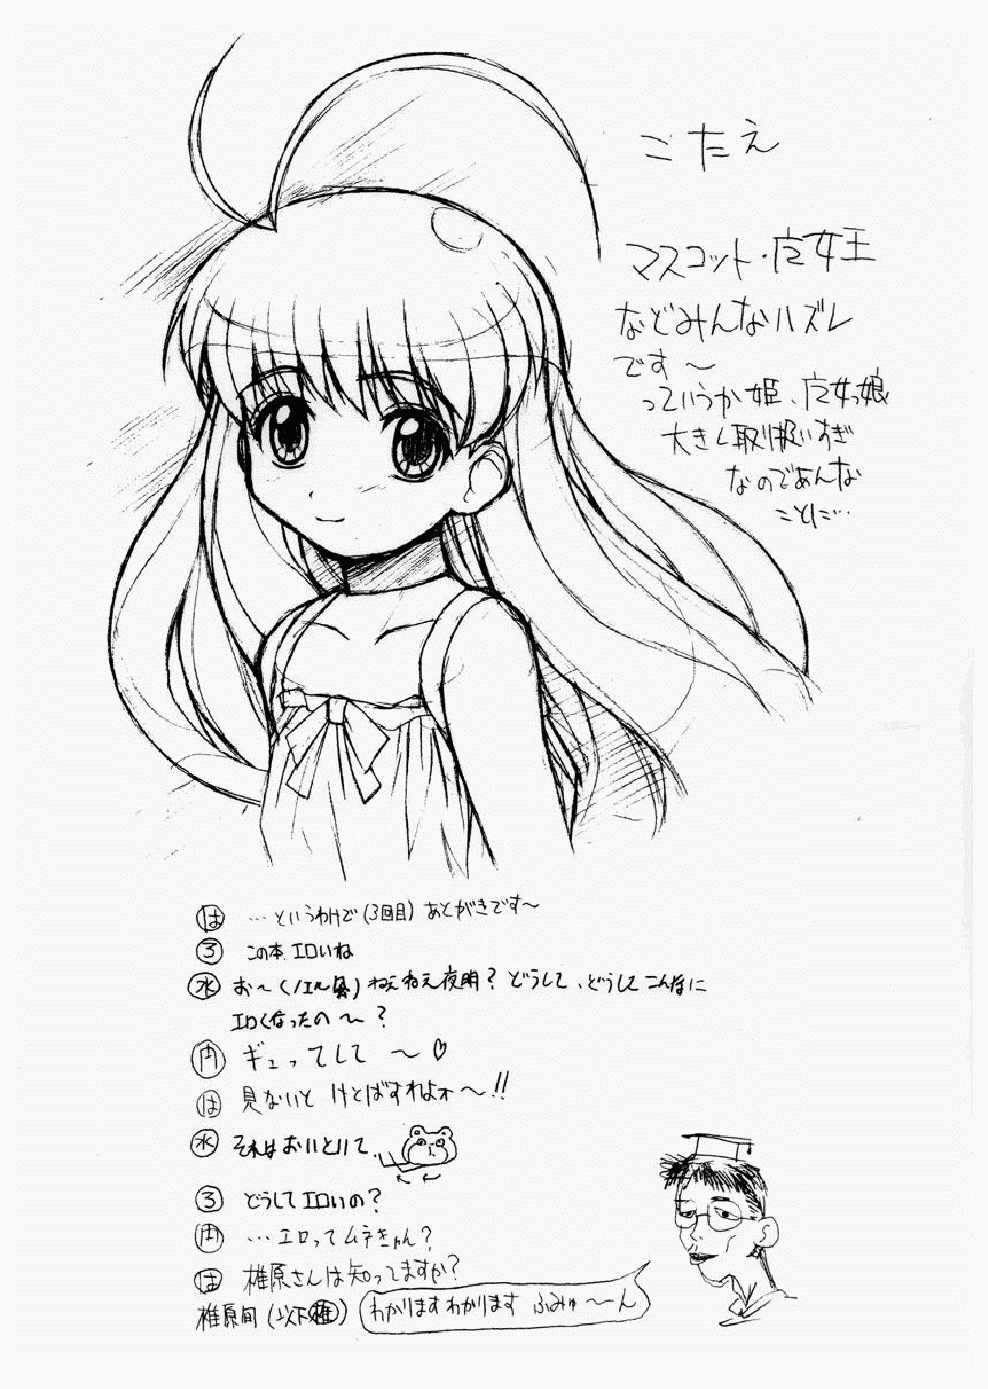 こたえ
マスコット・魔女王
などみんなハズレ
です〜
っていうか姫、魔女っ娘
大きく取り扱いすぎ
なのであんな
ことに…
は …というわけで(3回目)あとがきです〜
3 この本エロいね
水 お〜(ノエル風)ねえねえ夜明?どうして、どうしてこんなに
エロくなったの〜?
門 ギュってして 〜♡
は 見ないと けとばすわよォ〜!!
水 それはおいといて、
3 どうしてエロいの?
門 …エロってムテきゃん?
は 椎原さんは知ってますか?
椎原 (以下椎) わかりますわかります ふみゅ〜〜ん